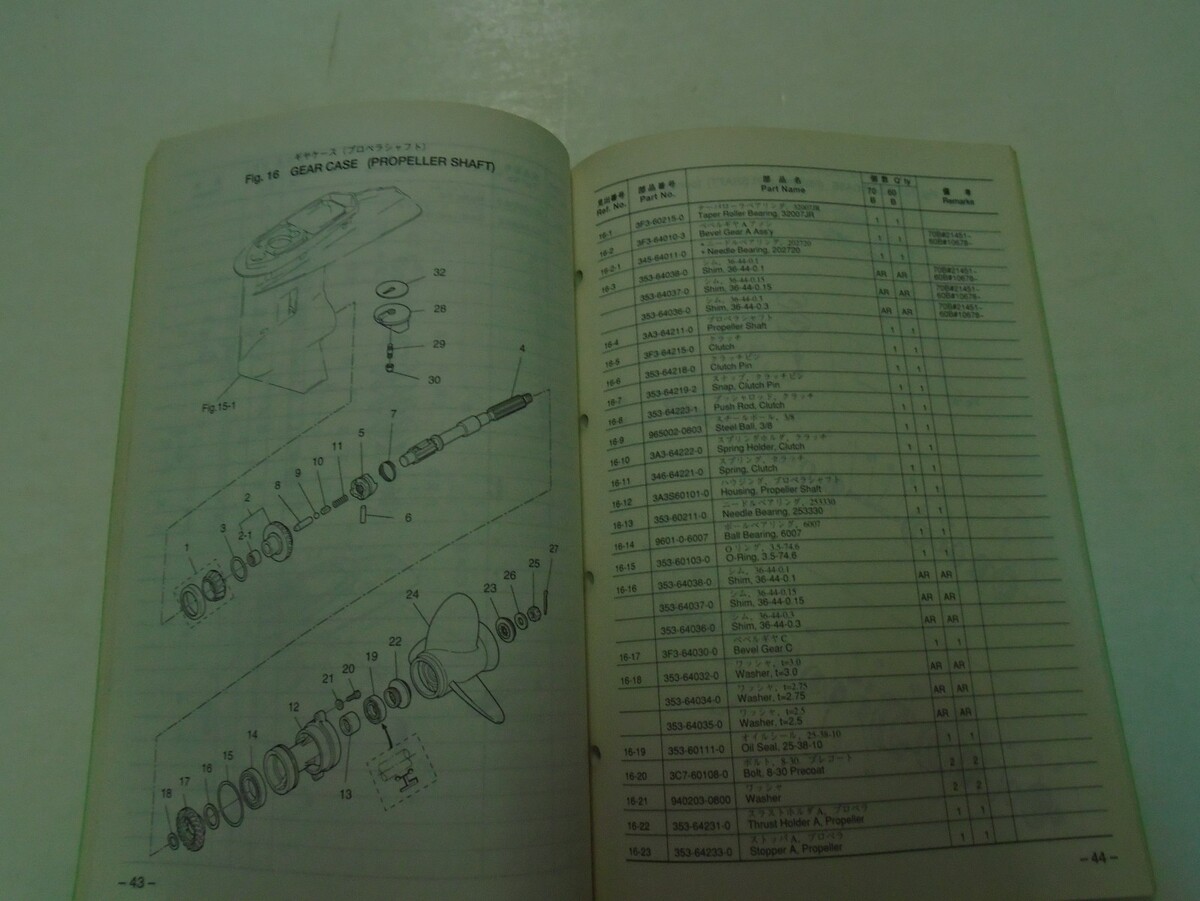 ギヤケース (プロペラシャフト)
Fig. 16 GEAR CASE (PROPELLER SHAFT)
32
28
29
30
4
Fig.15-1
7
5
11
10
9
8
2
3
2-1
6
1
27
25
26
23
24
22
19
20
21
12
13
14
15
16
17
18
－43－
見出番号 部品番号 部品名 個数 Q'ty 備考
Ref. No. Part No. Part Name 70B 60B Remarks
テーパローラベアリング, 32007JR
16-1 3F3-60215-0 Taper Roller Bearing, 32007JR 1 1
ベベルギヤAアッシ
16-2 3F3-64010-3 Bevel Gear A Ass'y 1 1 70B#21451- 60B#10678-
・ニードルベアリング, 202720
16-2-1 345-64011-0 • Needle Bearing, 202720 1 1
シム, 36-44-0.1
16-3 353-64038-0 Shim, 36-44-0.1 AR AR 70B#21451- 60B#10678-
シム, 36-44-0.15
353-64037-0 Shim, 36-44-0.15 AR AR 70B#21451- 60B#10678-
シム, 36-44-0.3
353-64036-0 Shim, 36-44-0.3 AR AR 70B#21451- 60B#10678-
プロペラシャフト
16-4 3A3-64211-0 Propeller Shaft 1 1
クラッチ
16-5 3F3-64215-0 Clutch 1 1
クラッチピン
16-6 353-64218-0 Clutch Pin 1 1
スナップ, クラッチピン
16-7 353-64219-2 Snap, Clutch Pin 1 1
プッシャロッド, クラッチ
16-8 353-64223-1 Push Rod, Clutch 1 1
スチールボール, 3/8
16-9 965002-0803 Steel Ball, 3/8 1 1
スプリングホルダ, クラッチ
16-10 3A3-64222-0 Spring Holder, Clutch 1 1
スプリング, クラッチ
16-11 346-64221-0 Spring, Clutch 1 1
ハウジング, プロペラシャフト
16-12 3A3S60101-0 Housing, Propeller Shaft 1 1
ニードルベアリング, 253330
16-13 353-60211-0 Needle Bearing, 253330 1 1
ボールベアリング, 6007
16-14 9601-0-6007 Ball Bearing, 6007 1 1
Oリング, 3.5-74.6
16-15 353-60103-0 O-Ring, 3.5-74.6 1 1
シム, 36-44-0.1
16-16 353-64038-0 Shim, 36-44-0.1 AR AR
シム, 36-44-0.15
353-64037-0 Shim, 36-44-0.15 AR AR
シム, 36-44-0.3
353-64036-0 Shim, 36-44-0.3 AR AR
ベベルギヤC
16-17 3F3-64030-0 Bevel Gear C 1 1
ワッシャ, t=3.0
16-18 353-64032-0 Washer, t=3.0 AR AR
ワッシャ, t=2.75
353-64034-0 Washer, t=2.75 AR AR
ワッシャ, t=2.5
353-64035-0 Washer, t=2.5 AR AR
オイルシール, 25-38-10
16-19 353-60111-0 Oil Seal, 25-38-10 1 1
ボルト, 8-30, プレコート
16-20 3C7-60108-0 Bolt, 8-30 Precoat 2 2
ワッシャ
16-21 940203-0800 Washer 2 2
スラストホルダA, プロペラ
16-22 353-64231-0 Thrust Holder A, Propeller 1 1
ストッパA, プロペラ
16-23 353-64233-0 Stopper A, Propeller 1 1
－44－